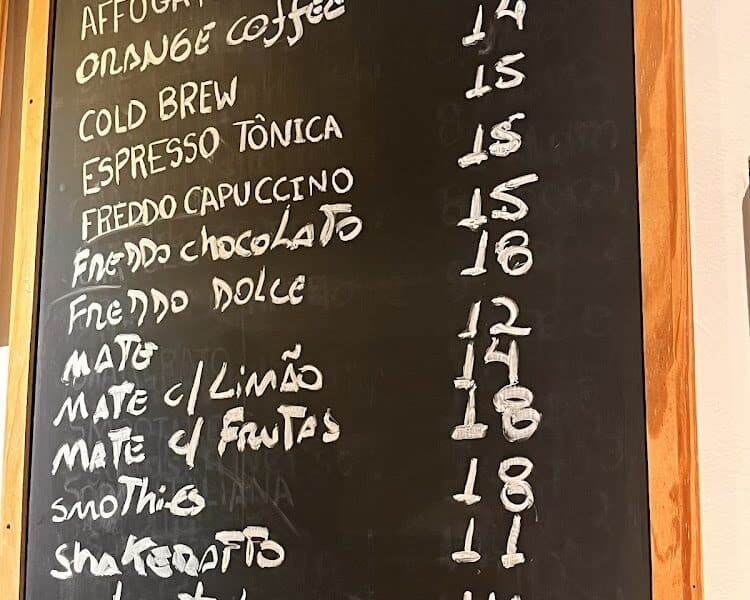 ORANGE COFFEE
COLD BREW 14
ESPRESSO TÔNICA 15
FREDDO CAPUCCINO
FREDDO CHOCOLATO 15
FREDDO DOLCE 18
MATE 12
MATE C/ LIMÃO 14
MATE C/ FRUTAS 18
SMOTHIES 18
SHAKERATTO 11